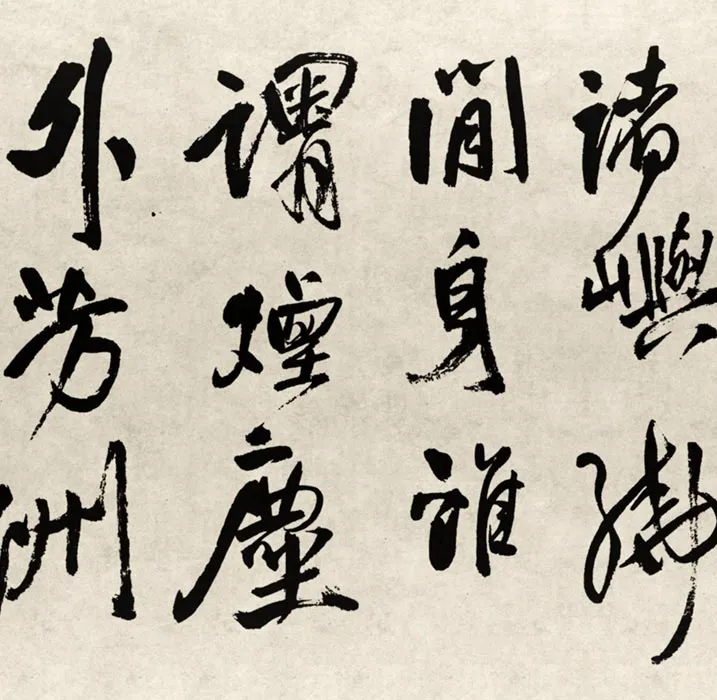 諸嶼
閒身誰
謂煙塵
外芳洲